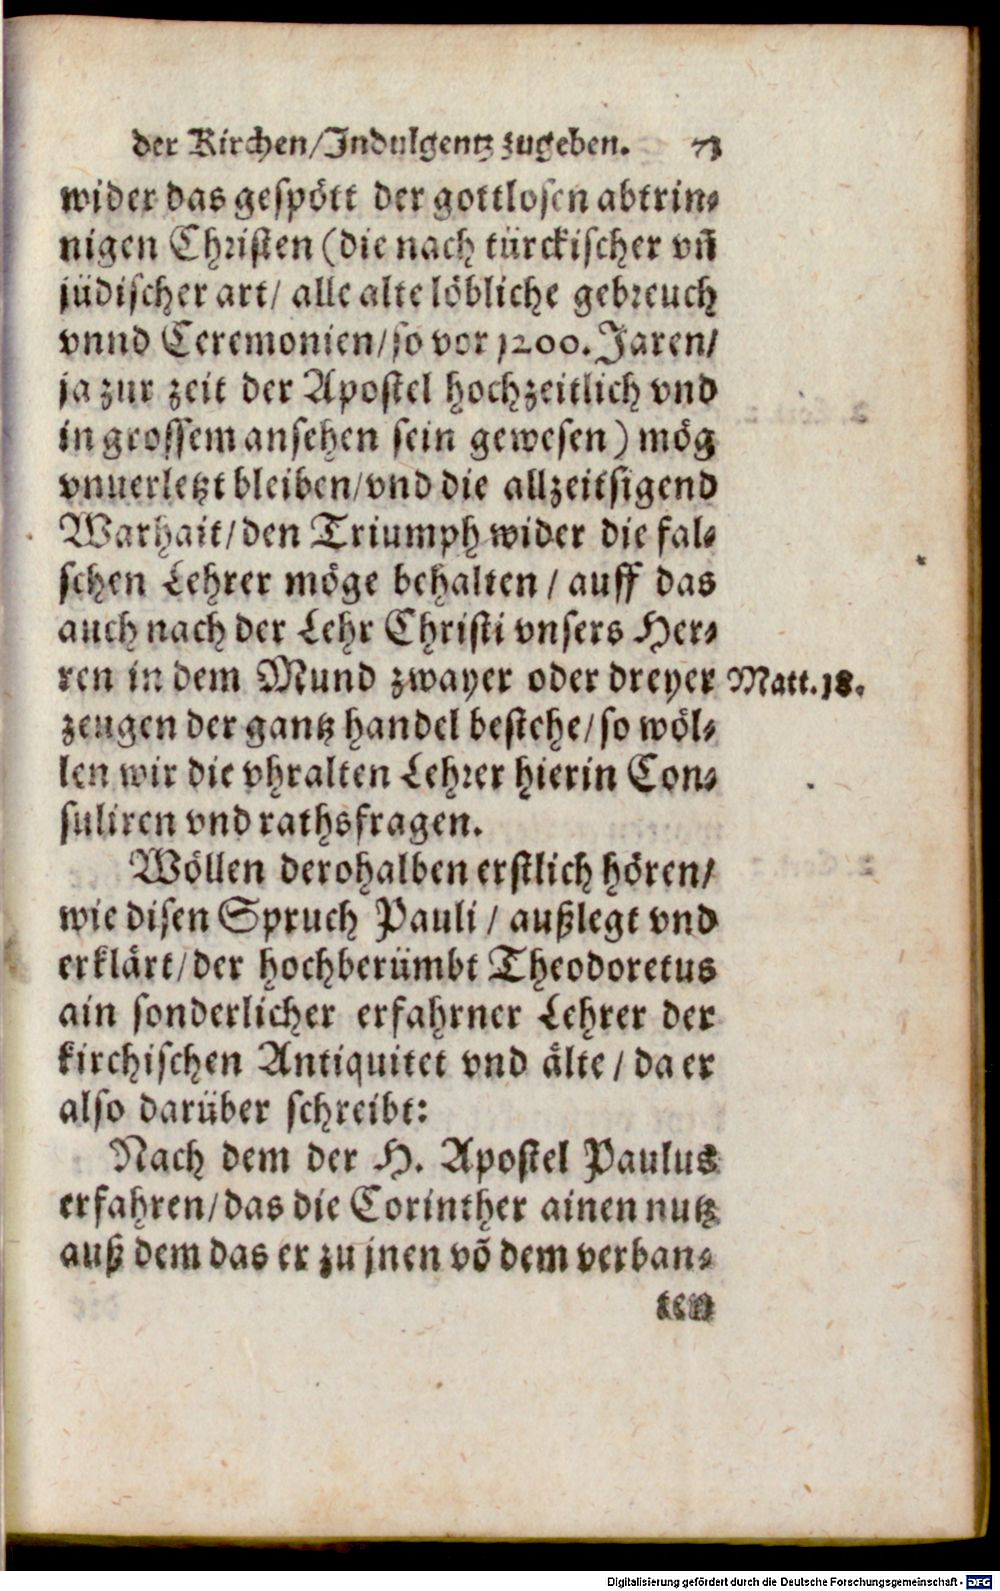 der Kirchen/Indulgentz zugeben. 73
wider das gespött der gottlosen abtrin⸗
nigen Christen (die nach türckischer vn̄
jüdischer art/ alle alte löbliche gebreuch
vnnd Ceremonien/so vor 1200. Jaren/
ja zur zeit der Apostel hochzeitlich vnd
in grossem ansehen sein gewesen) mög
vnuerletzt bleiben/vnd die allzeitsigend
Warhait/den Triumph wider die fal⸗
schen Lehrer möge behalten / auff das
auch nach der Lehr Christi vnsers Her⸗
ren in dem Mund zwayer oder dreyer Matt.18.
zeugen der gantz handel bestehe/so wöl⸗
len wir die vhralten Lehrer hierin Con⸗
suliren vnd rathsfragen.
Wöllen derohalben erstlich hören/
wie disen Spruch Pauli / außlegt vnd
erklärt/der hochberümbt Theodoretus
ain sonderlicher erfahrner Lehrer der
kirchischen Antiquitet vnd älte / da er
also darüber schreibt:
Nach dem der H. Apostel Paulus
erfahren/das die Corinther ainen nutz
auß dem das er zu jnen võ dem verban⸗
ten
Digitalisierung gefördert durch die Deutsche Forschungsgemeinschaft - DFG